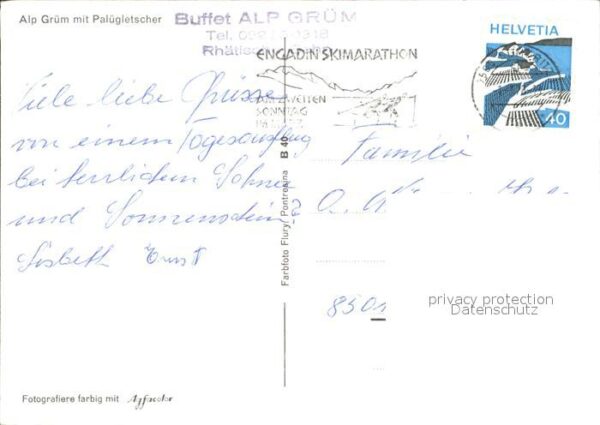 Alp Grüm mit Palügletscher
Buffet ALP GRÜM
Tel.
HELVETIA
40
ENGADIN SKIMARATHON
AM ZWEITEN
SONNTAG
Viele liebe Grüsse
von einem Tagesausflug
bei herrlichem Schnee
und Sonnenschein
Lisbeth Ernst
Familie
8501
Farbfoto Flury, Pontresina B 40
privacy protection
Datenschutz
Fotografiere farbig mit Agfacolor